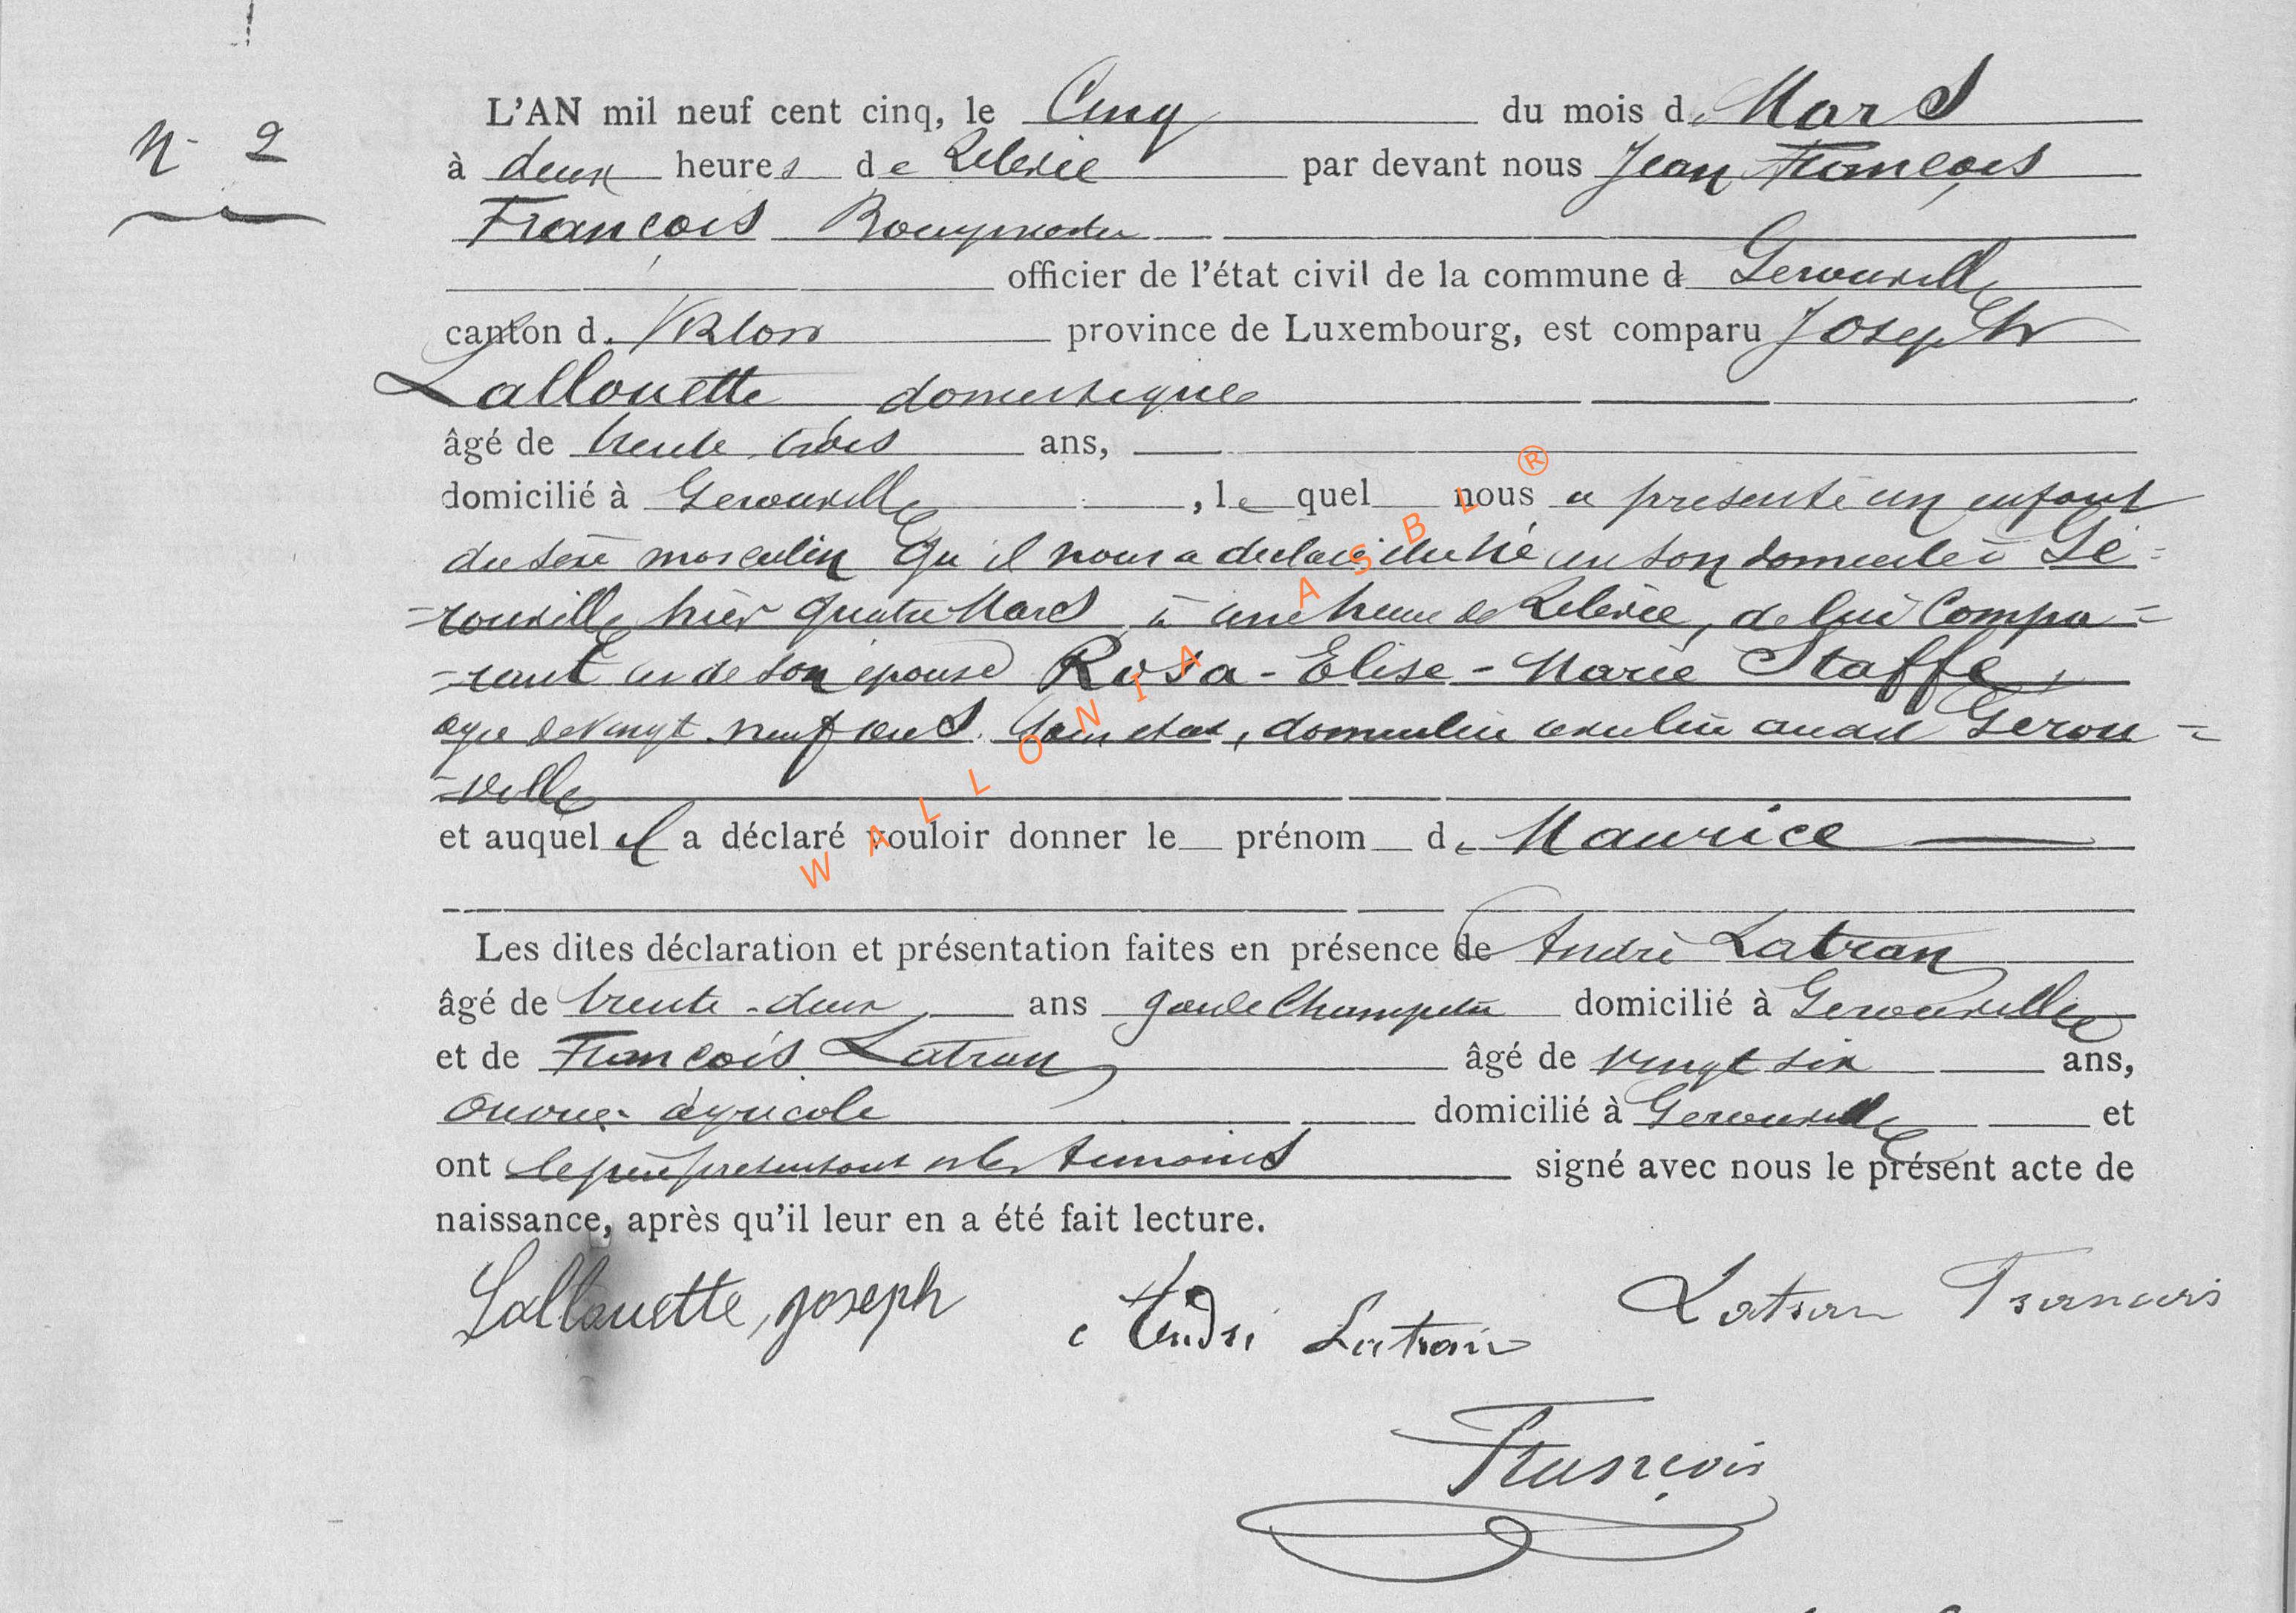 N° 2
L'AN mil neuf cent cinq, le Cinq du mois de Mars
à deux heures de Relevée par devant nous Jean François
François Bourgmestre
officier de l'état civil de la commune d Gerouville
canton d. Virton province de Luxembourg, est comparu Joseph
Lallouette domestique
âgé de trente trois ans,
domicilié à Gerouville, le quel nous a présenté un enfant
du sexe masculin qu'il nous a déclaré être né en son domicile à Gé=
=rouville hier quatre Mars à une heure de Relevée, de lui Compa=
=rant et de son épouse Rosa-Elise-Marie Staffe,
agée de vingt neuf ans. Sans état, domiciliée avec lui audit Gerou=
=ville
et auquel il a déclaré vouloir donner le prénom de Maurice
Les dites déclaration et présentation faites en présence de André Latran
âgé de trente-deux ans garde Champêtre domicilié à Gerouville
et de François Latran âgé de vingt six ans,
ouvrier agricole domicilié à Gerouville et
ont le père présentant et les témoins signé avec nous le présent acte de
naissance, après qu'il leur en a été fait lecture.
Lallouette, joseph André Latran Latran Francois
François
WALLONIA ASBL ®